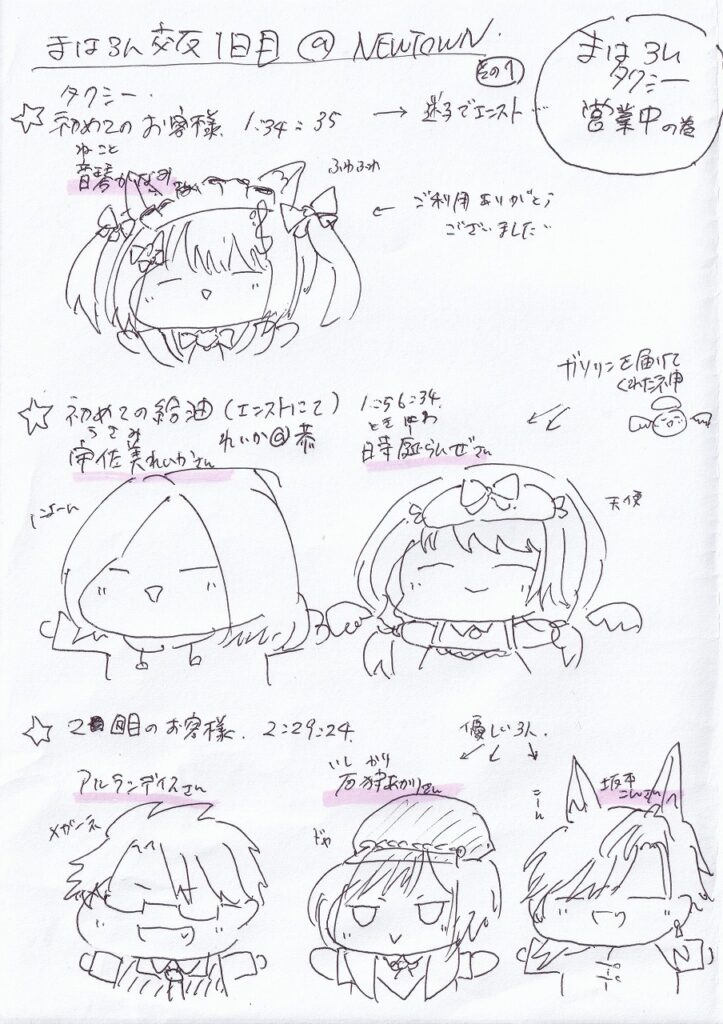 まはろん 交反 1日目 @ NEWTOWN.
その1
まはろん
タクシー
営業中の巻
タクシー.
初めてのお客様 1:34:35
→ 迷子でエンスト…
ねこと
音琴かなみ
ふわふわ
← ご利用ありがとう
ございました…
ガソリンを届けて
くれた神
初めての給油(エンストにて)
れいか@恭
1:56:34.
うさみ
宇佐美れいかさん
ときのわ
らんぜさん
にょーん
天使
2回目のお客様. 2:29:24.
優しい3人.
アルランディスさん
いし かり
石狩あかりさん
坂本
こんさん
メガーネ
ドヤ
こーん